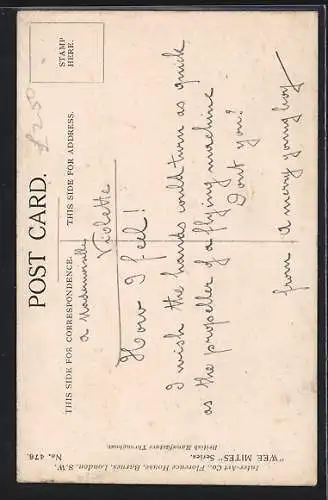 POST CARD.
THIS SIDE FOR CORRESPONDENCE.
THIS SIDE FOR ADDRESS.
STAMP
HERE.
£2.50
a Mademoiselle
Violette
How I feel!
I wish the hands could turn as quick
as the propeller of a flying machine
Dont you?
from a merry young boy
Inter-Art Co., Florence House, Barnes, London, S.W.
"WEE MITES" Series.
No. 476.
British Manufacture Throughout.